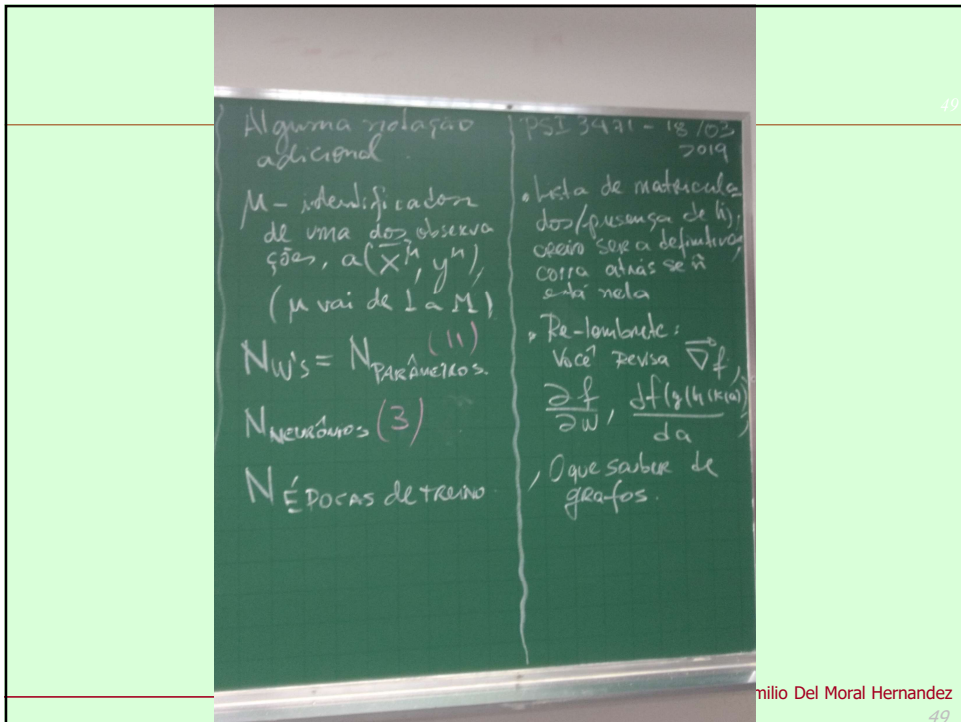 Alguma notação
adicional.
μ - identificador
de uma das observa
ções, a (x̄^μ, y^μ),
(μ vai de 1 a M)
Nw's = N PARÂMETROS. (11)
N NEURÔNIOS (3)
N ÉPOCAS de treino
PSI 3471 - 18/03
2019
• Lista de matricula
dos/presença de hj,
creio ser a definitiva,
corra atrás se ñ
está nela
• Re-lembrete:
Você revisa ∇f,
∂f/∂w, df(g(h(k(a))))/da
, O que saber de
grafos.
49
milio Del Moral Hernandez
49